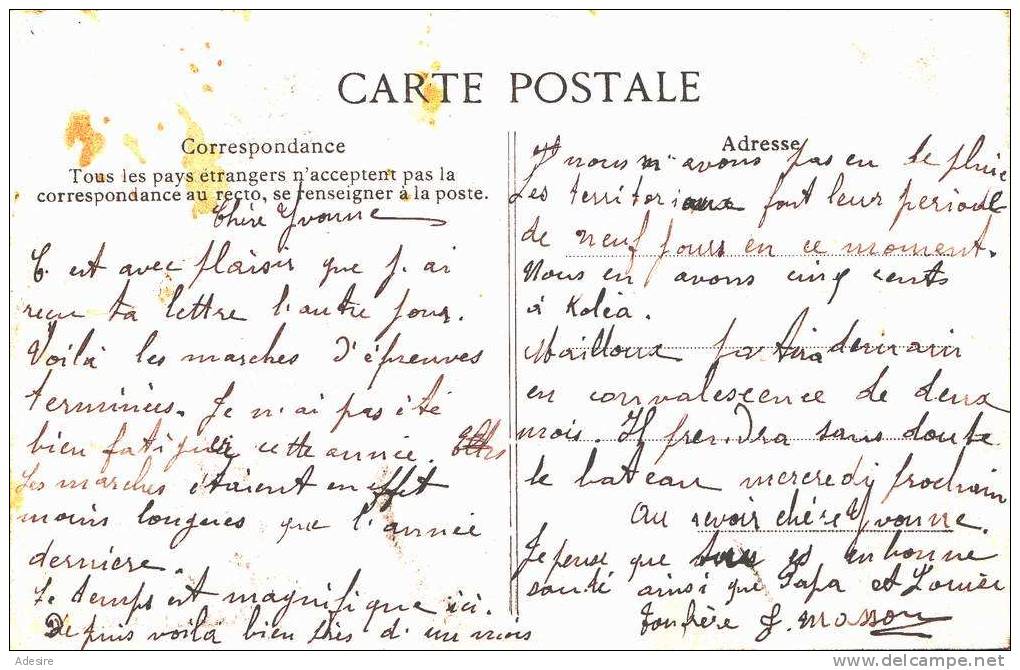 CARTE POSTALE
Correspondance
Tous les pays étrangers n'acceptent pas la
correspondance au recto, se renseigner à la poste.
Chère Yvonne
C. est avec plaisir que j. ai
reçu ta lettre l'autre jour.
Voilà les marches d'épreuves
terminées. Je n'ai pas été
bien fatiguer cette année.
Les marches étaient en effet
moins longues que l'année
dernière.
Le temps est magnifique ici.
Depuis voilà bien près d'un mois
Adresse
nous n'avons pas eu de pluie
Les territoriaux font leur période
de neuf jours en ce moment.
Nous en avons cinq cents
à Koléa.
Mailloux partira demain
en convalescence de deux
mois. Il prendra sans doute
le bateau mercredi prochain
Au revoir chère Yvonne.
Je pense que tu es en bonne
santé ainsi que Papa et Louise
Ton frère J. Masson
Adesire
www.delcampe.net